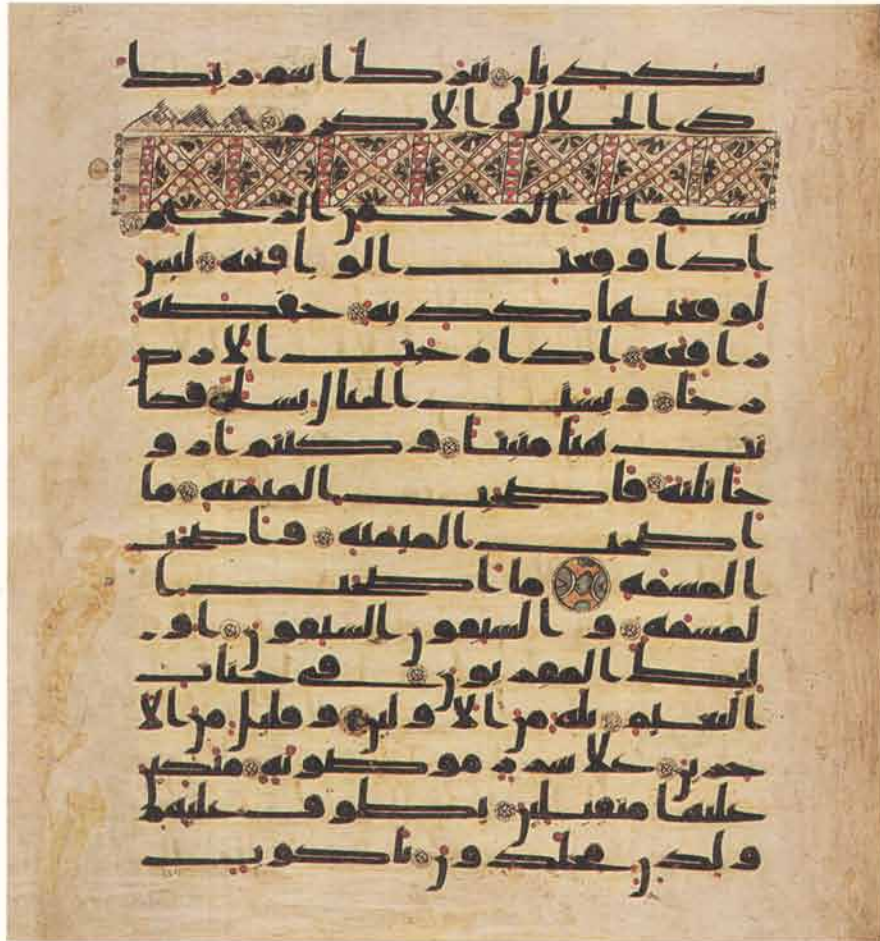 تكذبان تبرك اسم ربك
ذي الجلل والاكرم
بسم الله الرحمن الرحيم
اذا وقعت الواقعة ليس
لوقعتها كذبة خفضة
رافعة اذا رجت الارض
رجا وبست الجبال بسا فكا
نت هبا منبثا وكنتم ازو
جا ثلثة فاصحب الميمنة ما
اصحب الميمنة واصحب
المشمة ما اصحب ا
لمشمة والسبقون السبقون او
لئك المقربون في جنت
النعيم ثلة من الاولين وقليل من الا
خرين على سرر موضونة متكين
عليها متقبلين يطوف عليهم
ولدن مخلدون باكوب